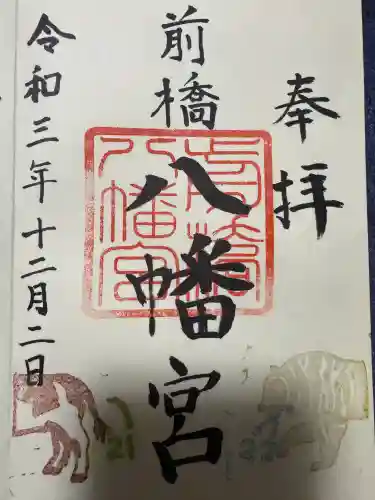 奉拝
前橋
八幡宮
令和三年十二月二日
前橋
八幡宮
21
22